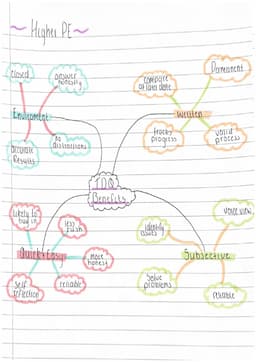 ~ Higher PE ~
closed
answer
honestly
Environment
accurate
Results
no
distractions
compare
at later date
Permanent
Written
tracks
progress
valid
process
TDQ
Benefits
likely to
buy in
less
rush
Quick & Easy
more
honest
self
reflection
reliable
identify
issues
voice view
Subjective
solve
problems
reliable